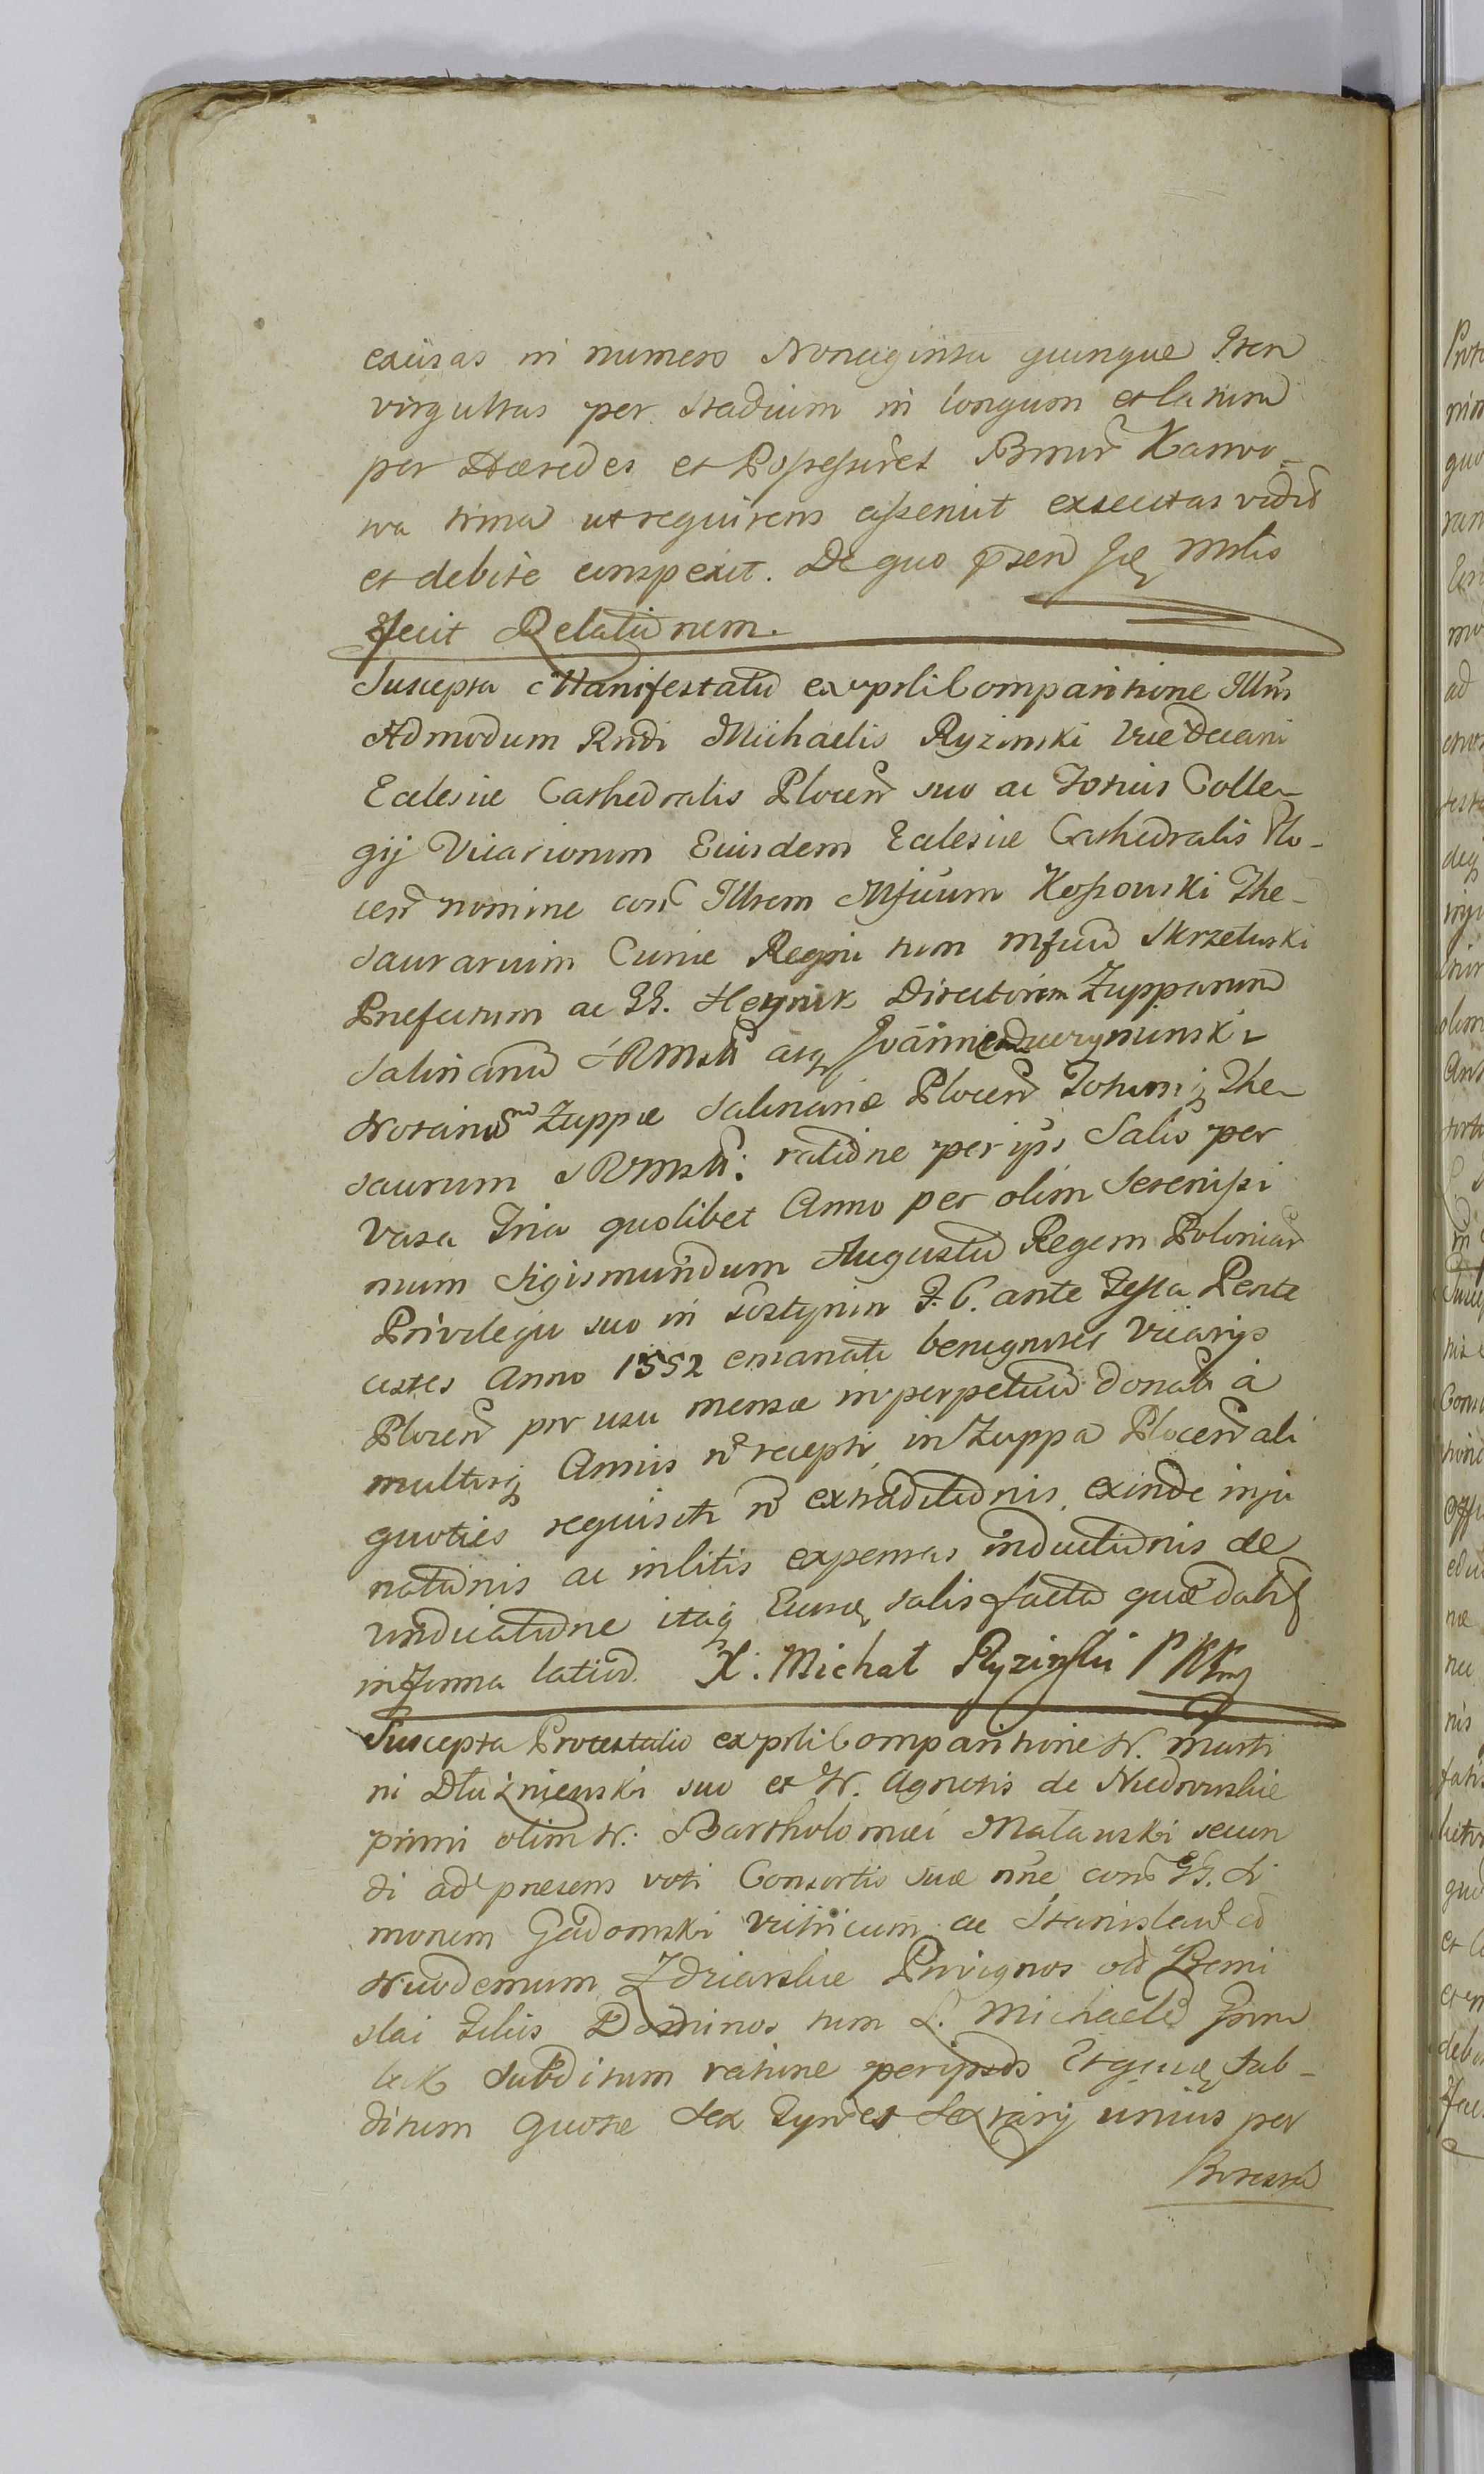 excisas in numero Nonaginta quinque Item
virgultas per Stadium in longum et latum
per Hæredes et Possessores Bonor̃ Karwo-
wa trina ut requirens asseruit exsectas vidit
et debite conspexit. De quo p̃sen
Fecit Relationem.
Suscepta Manifestatio ex prsli Comparitione Illris
Admodum Rndi Michaelis Ryzinski Vice Decani
Eclesiæ Cathedralis Plocen̄ suo ac Totius Colle-
gij Vicariorum Eiusdem Eclesiæ Cathedralis Plo-
cen̄ nomine con̄ Illrem Mfcum Kossowski The-
saurarium Curiæ Regni tum mfcum Skrzetuski
Præfectum ac GG. Heynik Directorem Zupparum
Salinarum SRMstis atq Joannem
Notarium Zuppæ Salinariæ Plocen̄ Totumq The-
saurum SRMstis: ratione per ipsos Salis per
Vasa Tria quolibet Anno per olim Serenissi
mum Sigismundum Augustum Regem Poloniar̃
Privilegio suo in Gostynin F. 6. ante Festa Pente
costes Anno 1552 emanato benigniter Vicarijs
Plocen̄ pro usu mensæ in perpetuum donati à
multisq Annis ñ recepti in Zuppa Plocen̄ ali
quoties requisiti ñ extraditionis, exinde inju
riationis ac in litis expensas inductionis de
vindicatione itaq Eius satisfactio quæ dabit
in Forma latiori. X. Michał Ryzinski
Suscepta Protestatio ex prsli Comparitione N. Marti
ni Dłużniewski suo et N. Agnetis de Niedrowskie
primi olim N. Bartholomæi Małowski secun
di ad præsens voti Consortis suæ nñe con̄ GG. Si
monem Gadomski Vitricum ac Stanislaum et
Nicodemum Zdziarskie Privignos olim Przemi
slai Filios Dominos tum L. Michaelem
lek Subditum ratione per ipsos Ergo Sub-
ditum Quotæ Sex Tynfes Sextarij unius per